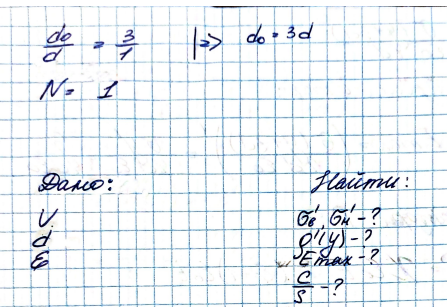 d₀/d = 3/1 |=> d₀ = 3d
N = 1
Дано: Найти:
V σ'в, σ'н - ?
d ρ'(y) - ?
ε Emax - ?
C/S - ?